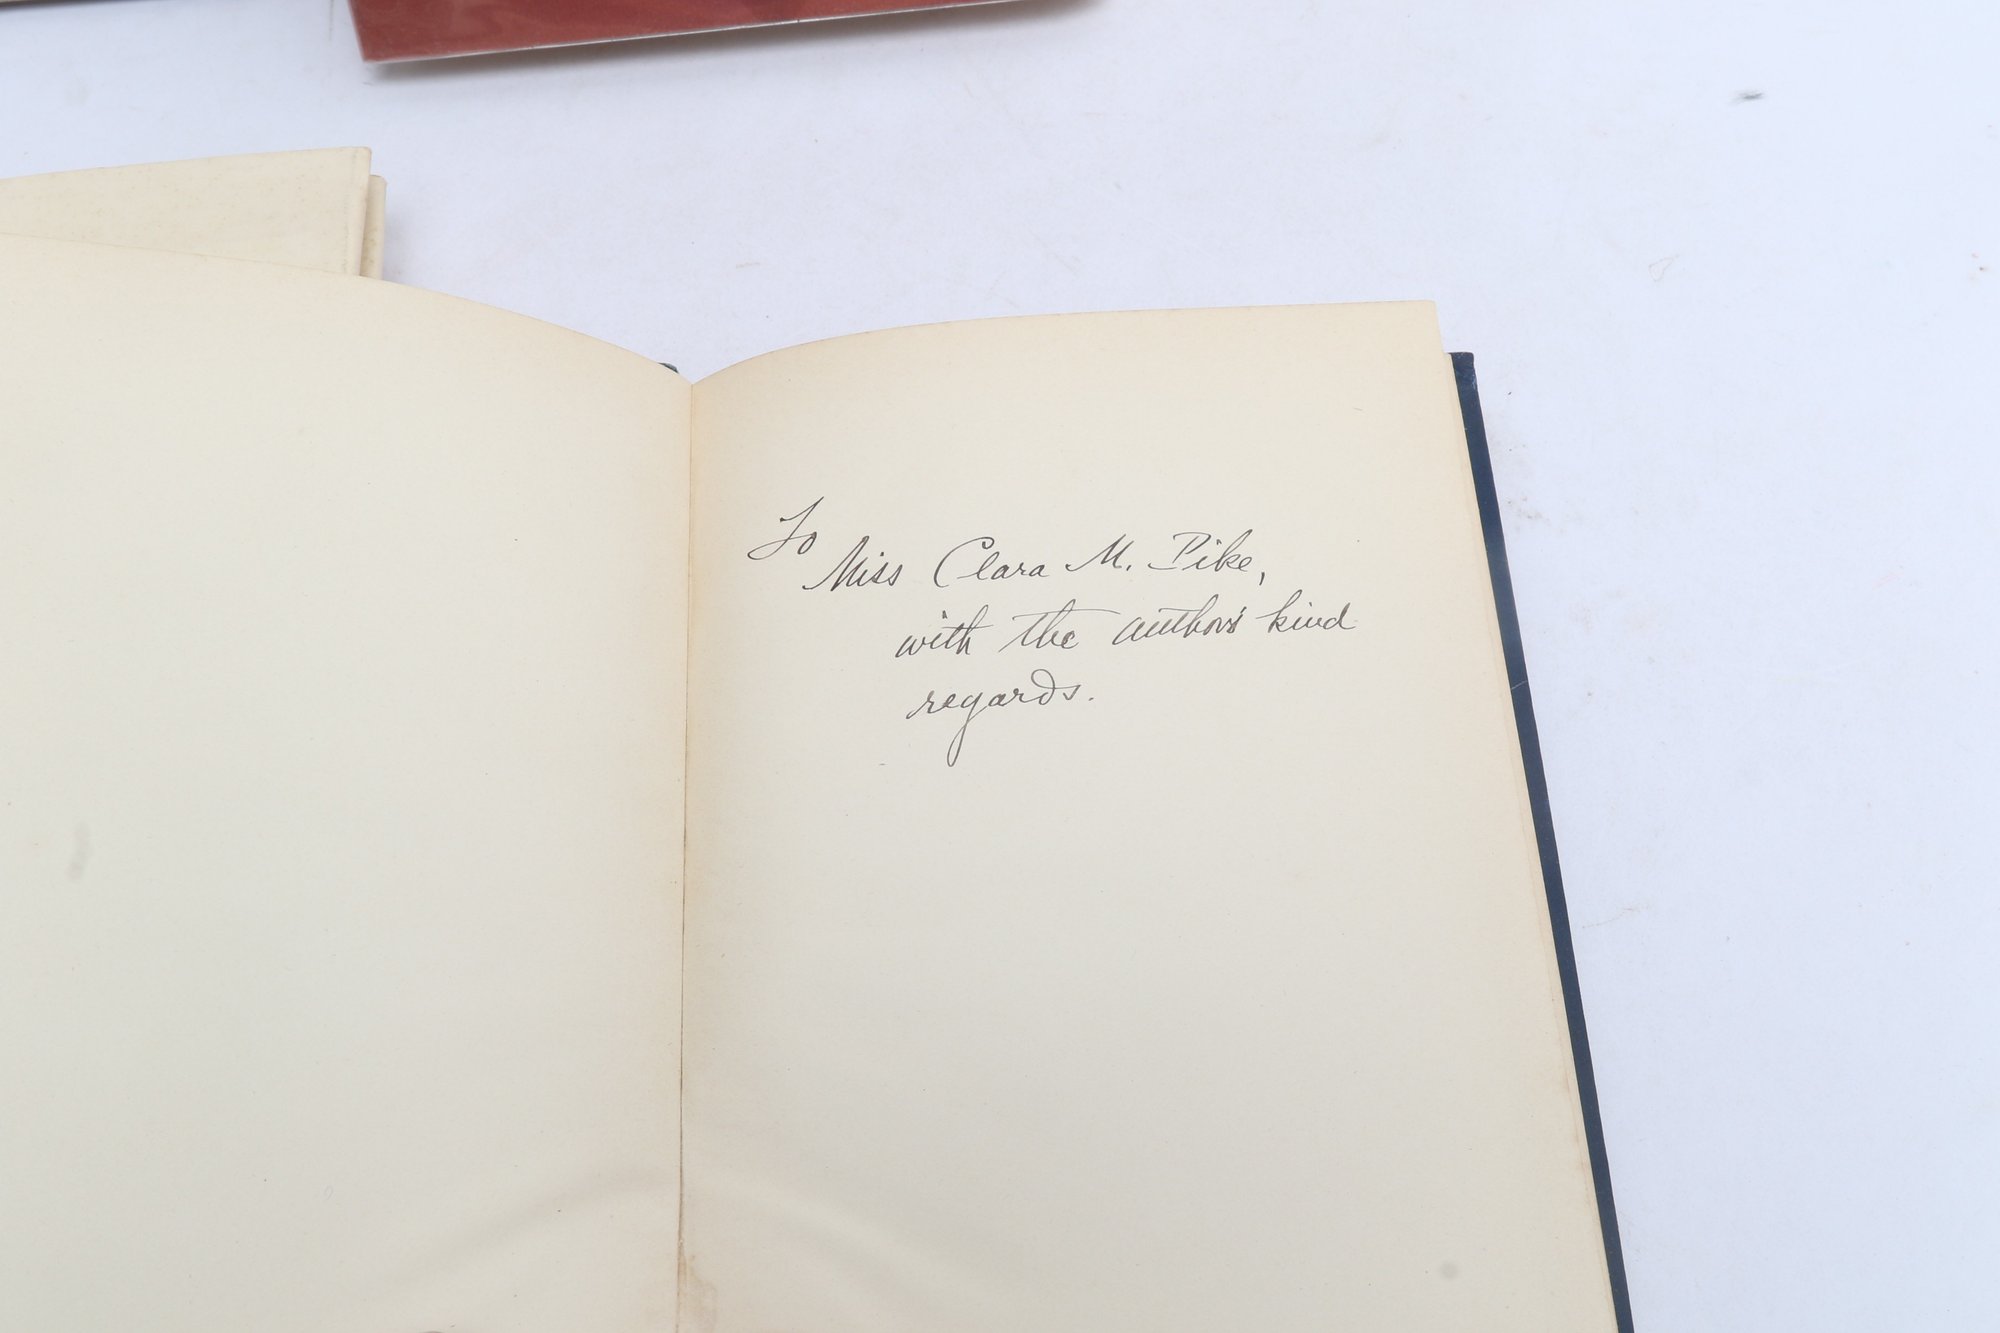 To
Miss Clara M. Pike,
with the author's kind
regards.